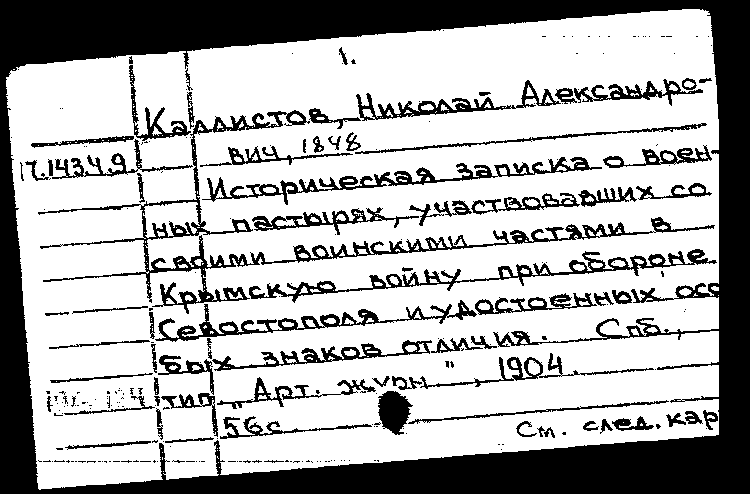 1.
Каллистов, Николай Александро-
вич, 1848
17.143.4.9
Историческая записка о воен-
ных пастырях, участвовавших со
своими воинскими частями в
Крымскую войну при обороне
Севастополя и удостоенных осо
бых знаков отличия. Спб.,
тип. „Арт. журн.", 1904.
56с.
См. след. кар